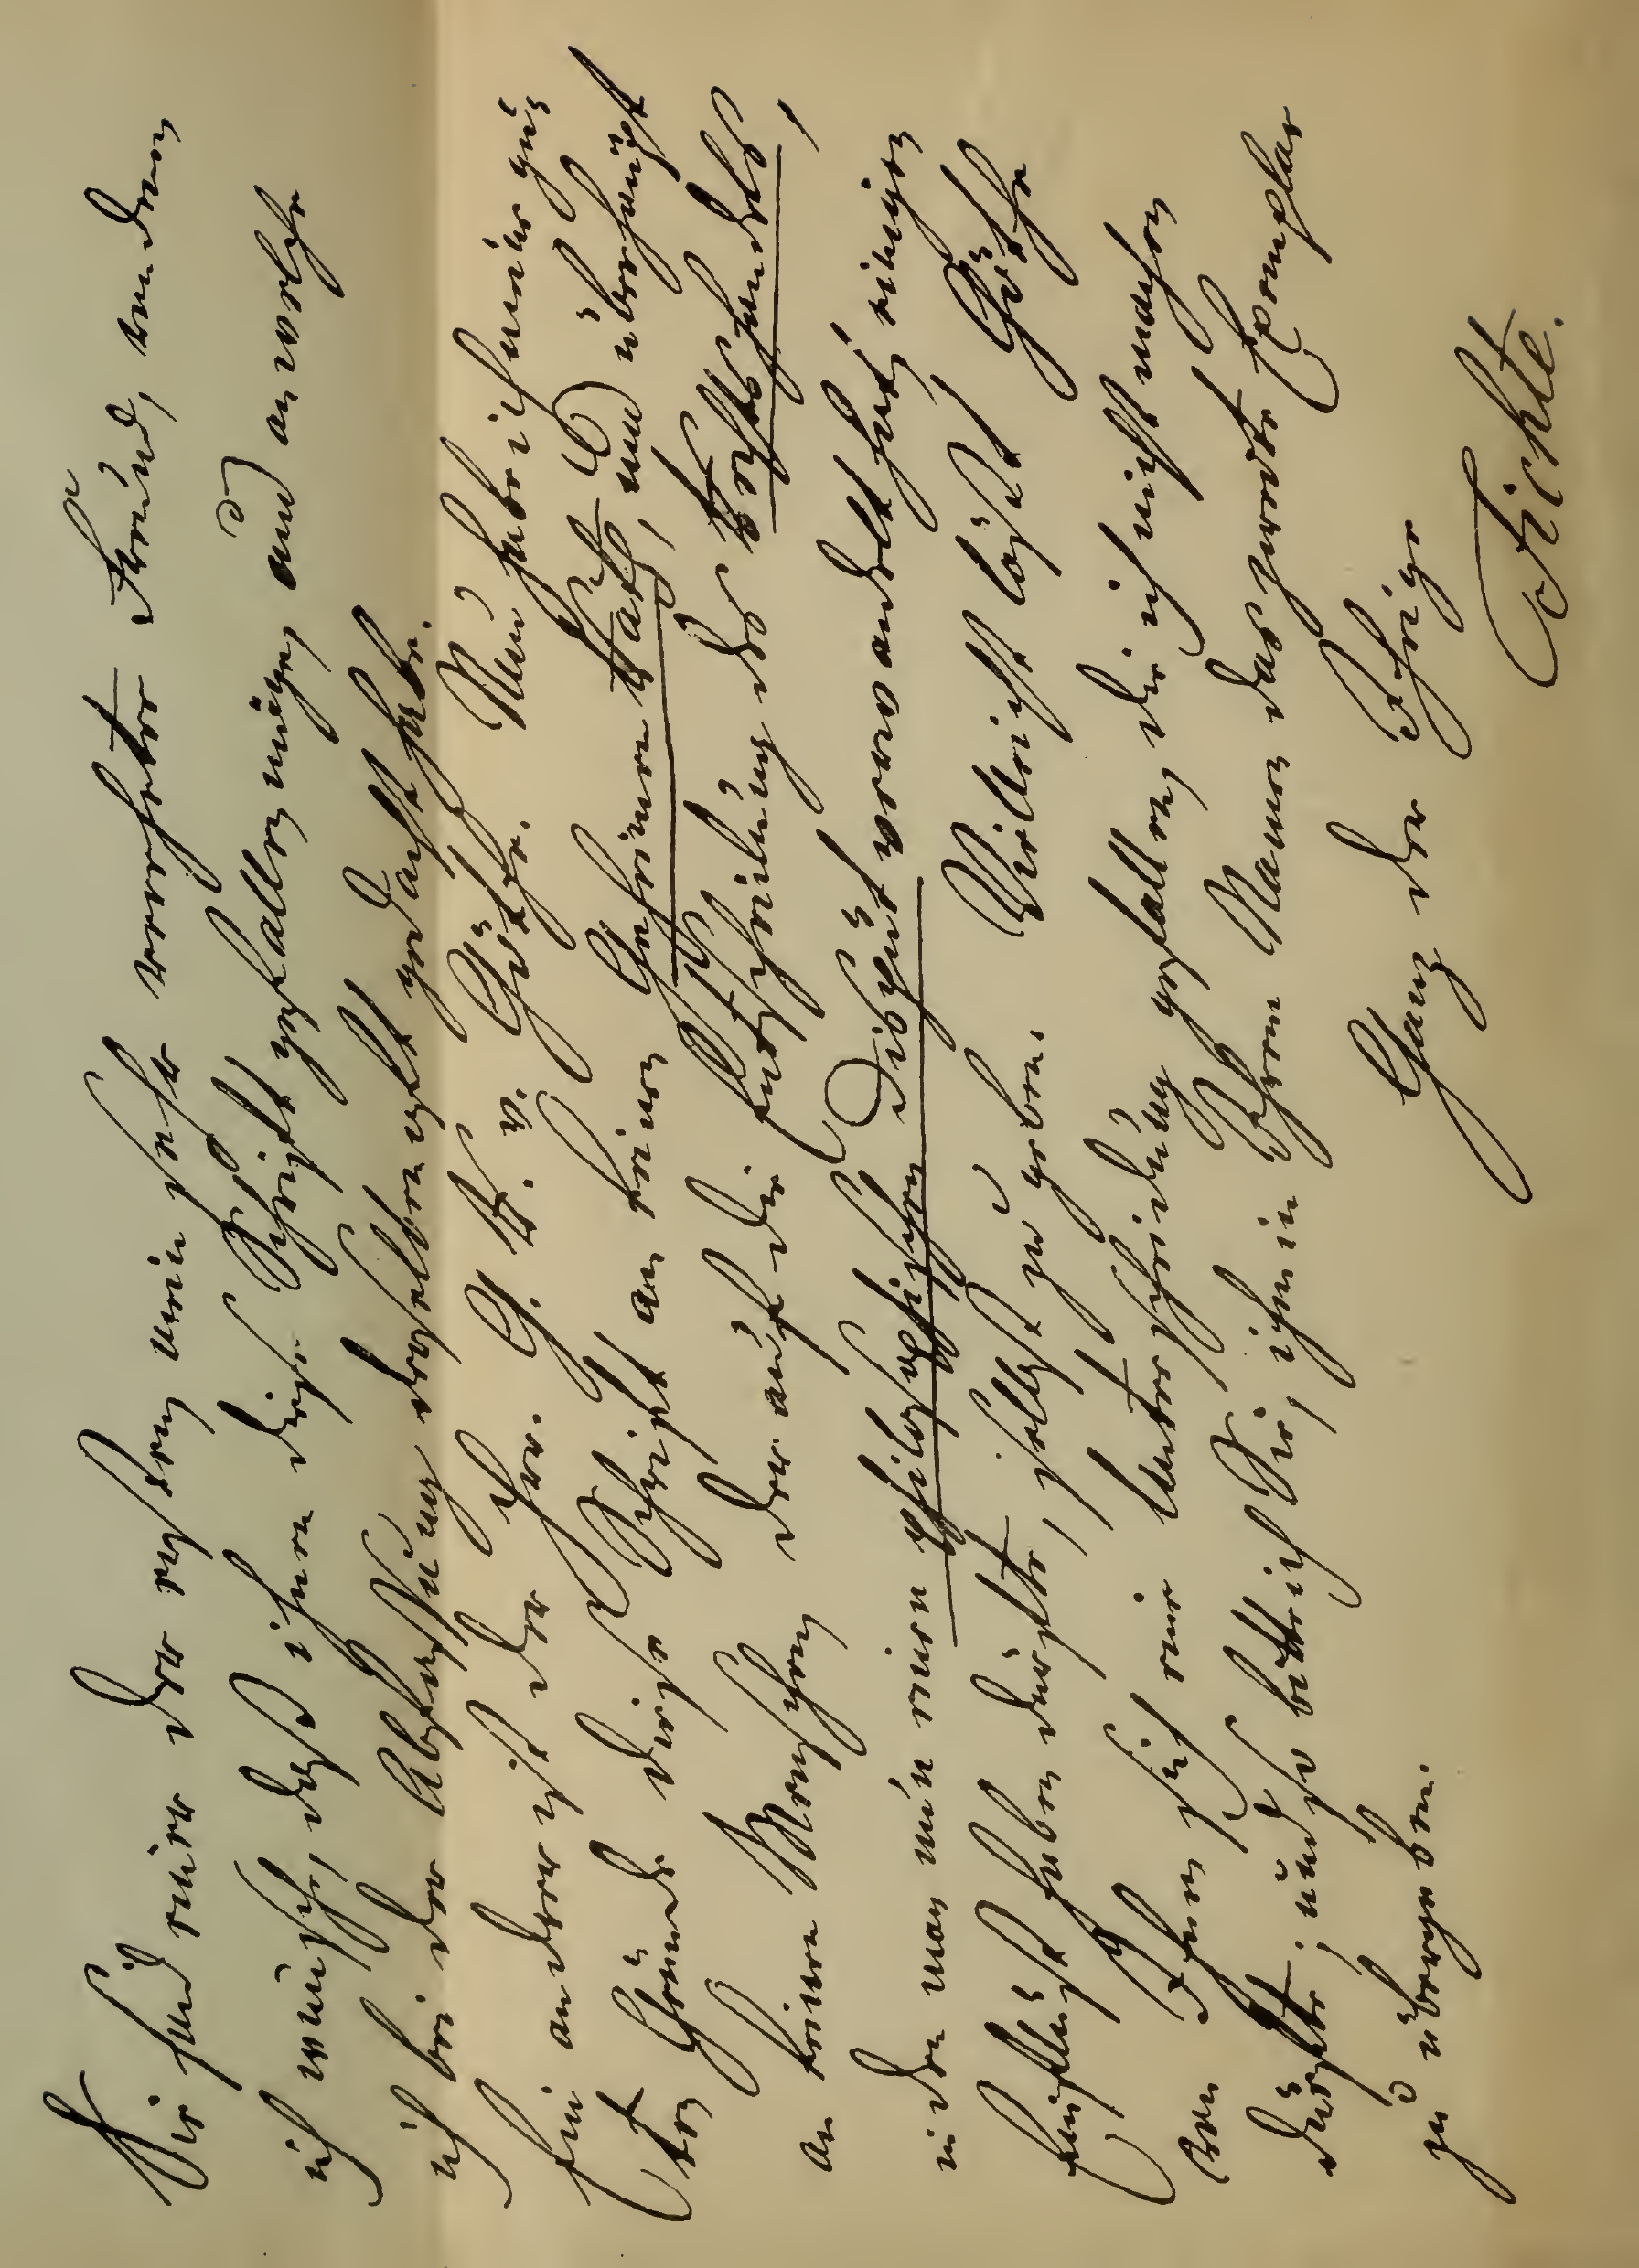 Sie sind einer der ersten mein sehr verehrter Freund, von denen
ich wünsche, daß ihnen diese Schrift gefallen möge, und an welche
ich bei der Abfassung derselben oft gedacht habe.
Ein anderer ist der Hr. G. R. v. Göthe. Nun habe ich meine gu-
ten Gründe diese Schrift an keinen Geheimen Rath, und überhaupt
an keinen Menschen der auf die Entscheidung des Rechtshandels,
in den man nun einen philosophischen Disput verwandelt hat, einigen
Einfluß haben dürfte, selbst zu geben. Vielleicht läßt Göthe
von Ihnen sich eine Unterscheidung gefallen, die ich nicht machen
dürfte; und so bitte ich Sie, ihm in Ihrem Namen das zweite Exemplar
zu übergeben.
Ganz der Ihrige
Fichte.